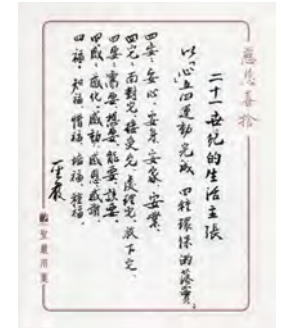 慈悲喜捨
二十一世紀的生活主張
以「心五四運動」完成 四種環保的落實。
四安：安心、安身、安家、安業。
四它：面對它、接受它、處理它、放下它。
四要：需要、想要、能要、該要。
四感：感化、感動、感恩、感謝。
四福：知福、惜福、培福、種福。
聖嚴
聖嚴用箋